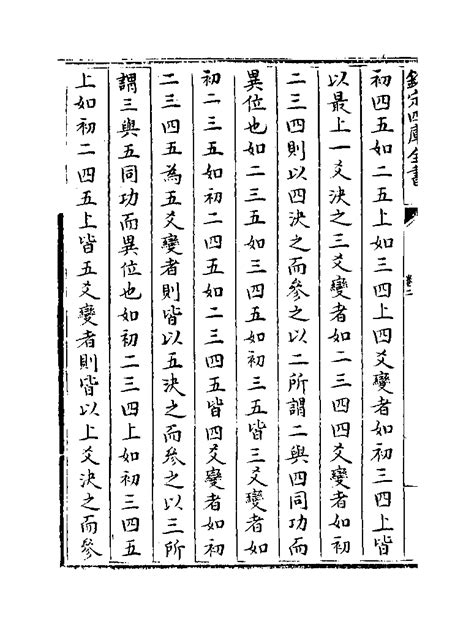 欽定四庫全書
卷二
初四五如二五上如三四上四爻變者如初三四上皆
以最上一爻決之三爻變者如二三四四爻變者如初
二三四則以四決之而參之以二所謂二與四同功而
異位也如二三五如三四五如初三五皆三爻變者如
初二三五如初二四五如二三四五皆四爻變者如初
二三四五為五爻變者則皆以五決之而參之以三所
謂三與五同功而異位也如初二三四上如初三四五
上如初二四五上皆五爻變者則皆以上爻決之而參